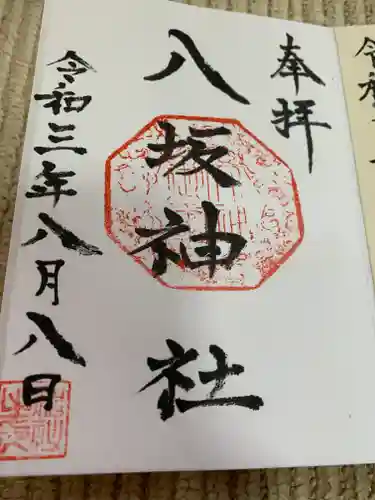 奉拝
八坂神社
令和三年八月八日
令和